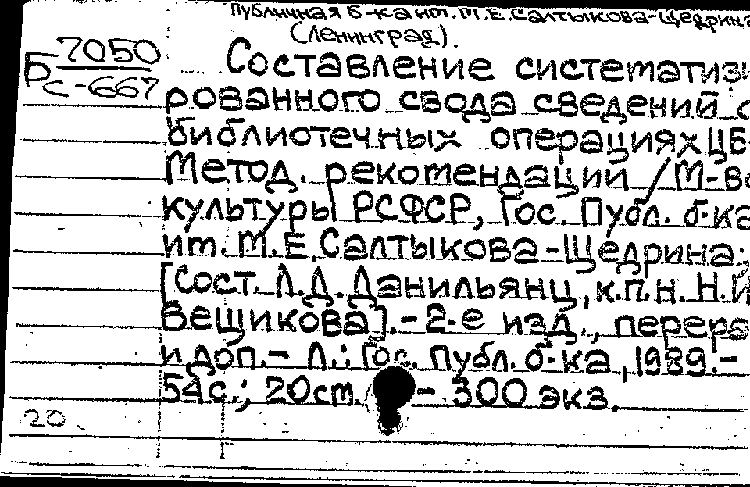 Публичная б-ка им. М.Е.Салтыкова-Щедрина
(Ленинград).
Б 7050
с-667
Составление систематизи
рованного свода сведений о
библиотечных операциях ЦБ
Метод. рекомендации / М-во
культуры РСФСР, Гос. Публ. б-ка
им. М.Е.Салтыкова-Щедрина;
[Сост. Л.Д.Данильянц, к.п.н. Н.И
Вещикова]. - 2-е изд., перера
и доп. - Л.: Гос. Публ. б-ка, 1989. -
54с.; 20см. - 300 экз.
20.